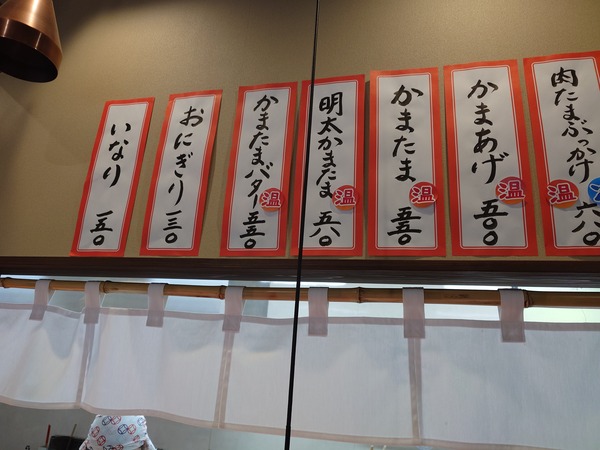 肉たまぶっかけ
温
六八〇
かまあげ
温
五〇〇
かまたま
温
五五〇
明太かまたま
温
五八〇
かまたまバター
温
五五〇
おにぎり
一三〇
いなり
一五〇